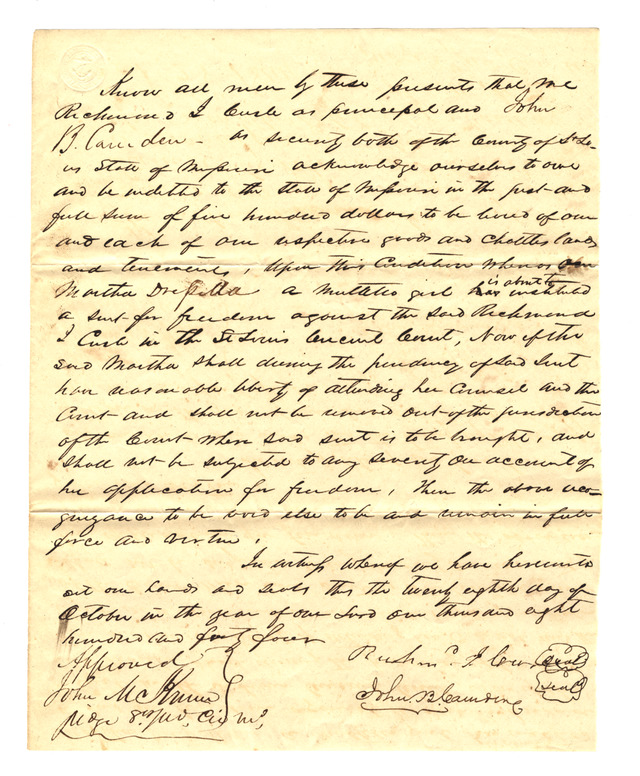 Know all men by these presents that we
Richmond J Curle as principal and John
B. Camden - as security both of the County of St Lo-
uis State of Missouri acknowledge ourselves to owe
and be indetted to the State of Missouri in the just and
full sum of five hundred dollars to be levied of our
and each of our respective goods and chattles lands
and tenements, Upon this Condition whereas
Martha Drusilla a Mulatto girl is about to institute
a suit for freedom against the said Richmond
J Curle in the St Louis Circuit Court, Now if the
said Martha Shall during the pendency of said Suit
have reasonable liberty of attending her Counsel and the
Court and shall not be removed out of the jurisdiction
of the Court where said suit is to be brought, and
shall not be subjected to any severity on account of
her application for freedom, then the above recog-
guizance to be void else to be and remain in full
force and virtue.
In witness whereof we have hereunto
set our hands and seals this the twenty eighth day of
October in the year of our Lord one thousand eight
hundred and forty four
Approved
Richmd. J. Curle (seal)
John M Krum
John B. Camden (seal)
Judge 8th Jud. Ci Mo,